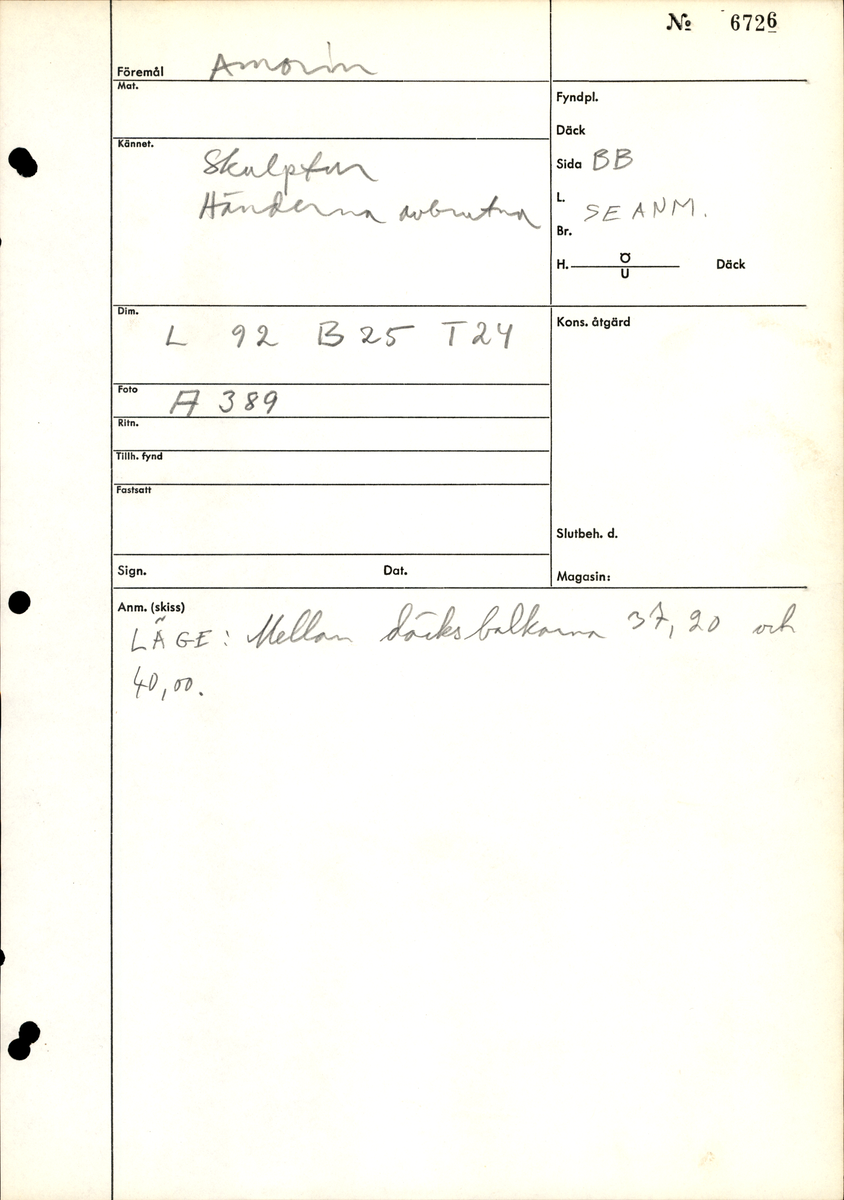 № 6726
Föremål Amorin
Mat.
Fyndpl.
Däck
Kännet. Skulptur
Sida BB
Händerna avbrutna
L. SE ANM.
Br.
H. Ö/U Däck
Dim. L 92 B 25 T 24
Kons. åtgärd
Foto A 389
Ritn.
Tillh. fynd
Fastsatt
Slutbeh. d.
Sign. Dat.
Magasin:
Anm. (skiss)
LÄGE: Mellan däcksbalkarna 37,20 och
40,00.